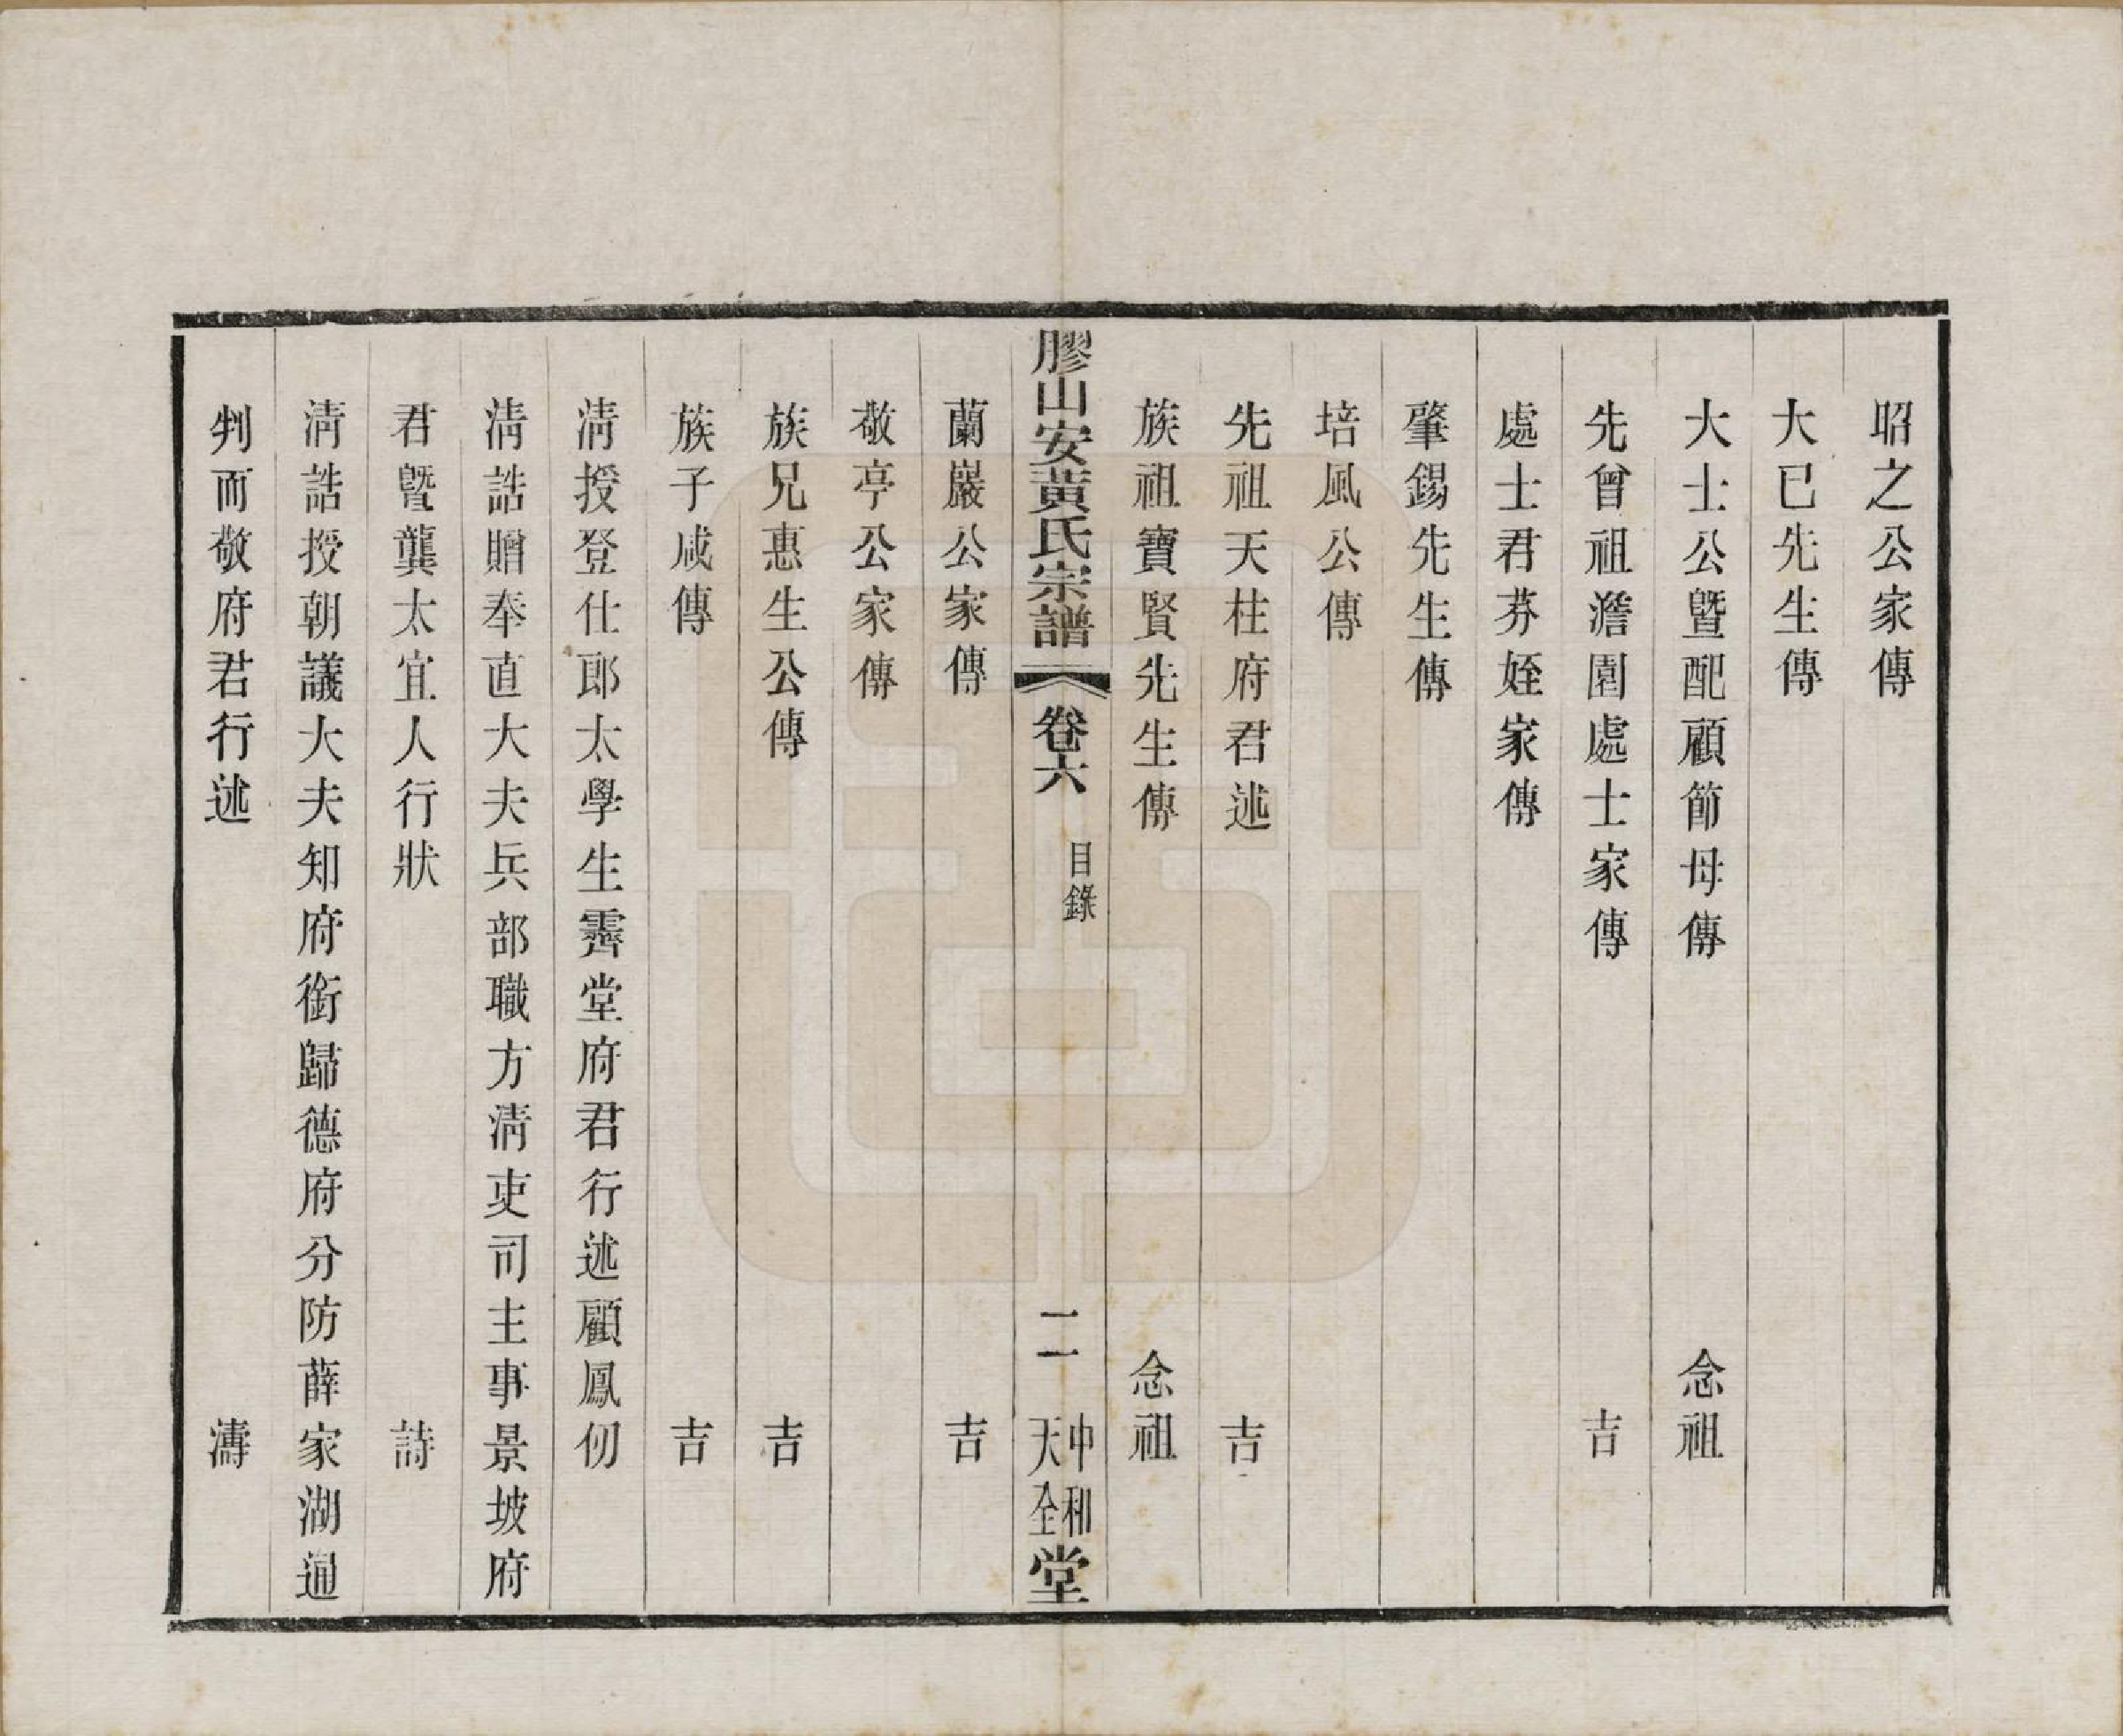 昭之公家傳
大已先生傳
大士公曁配顧節母傳　念祖
先曾祖澹園處士家傳　吉
處士君芬姪家傳
肇錫先生傳
培風公傳
先祖天柱府君述　吉
族祖寶賢先生傳　念祖
膠山安黃氏宗譜　卷六　目錄　二　中和天全堂
蘭巖公家傳　吉
敬亭公家傳
族兄惠生公傳　吉
族子咸傳　吉
淸授登仕郎太學生霽堂府君行述顧鳳仞
淸誥贈奉直大夫兵部職方淸吏司主事景坡府
君曁龔太宜人行狀　詩
淸誥授朝議大夫知府銜歸德府分防薛家湖通
判而敬府君行述　濤